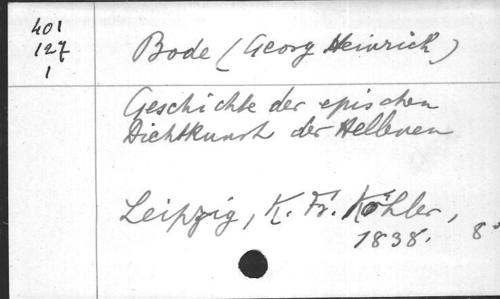 401
127
1
Bode (Georg Heinrich)
Geschichte der epischen
Dichtkunst der Hellenen
Leipzig, K. Fr. Köhler,
1838. 8°